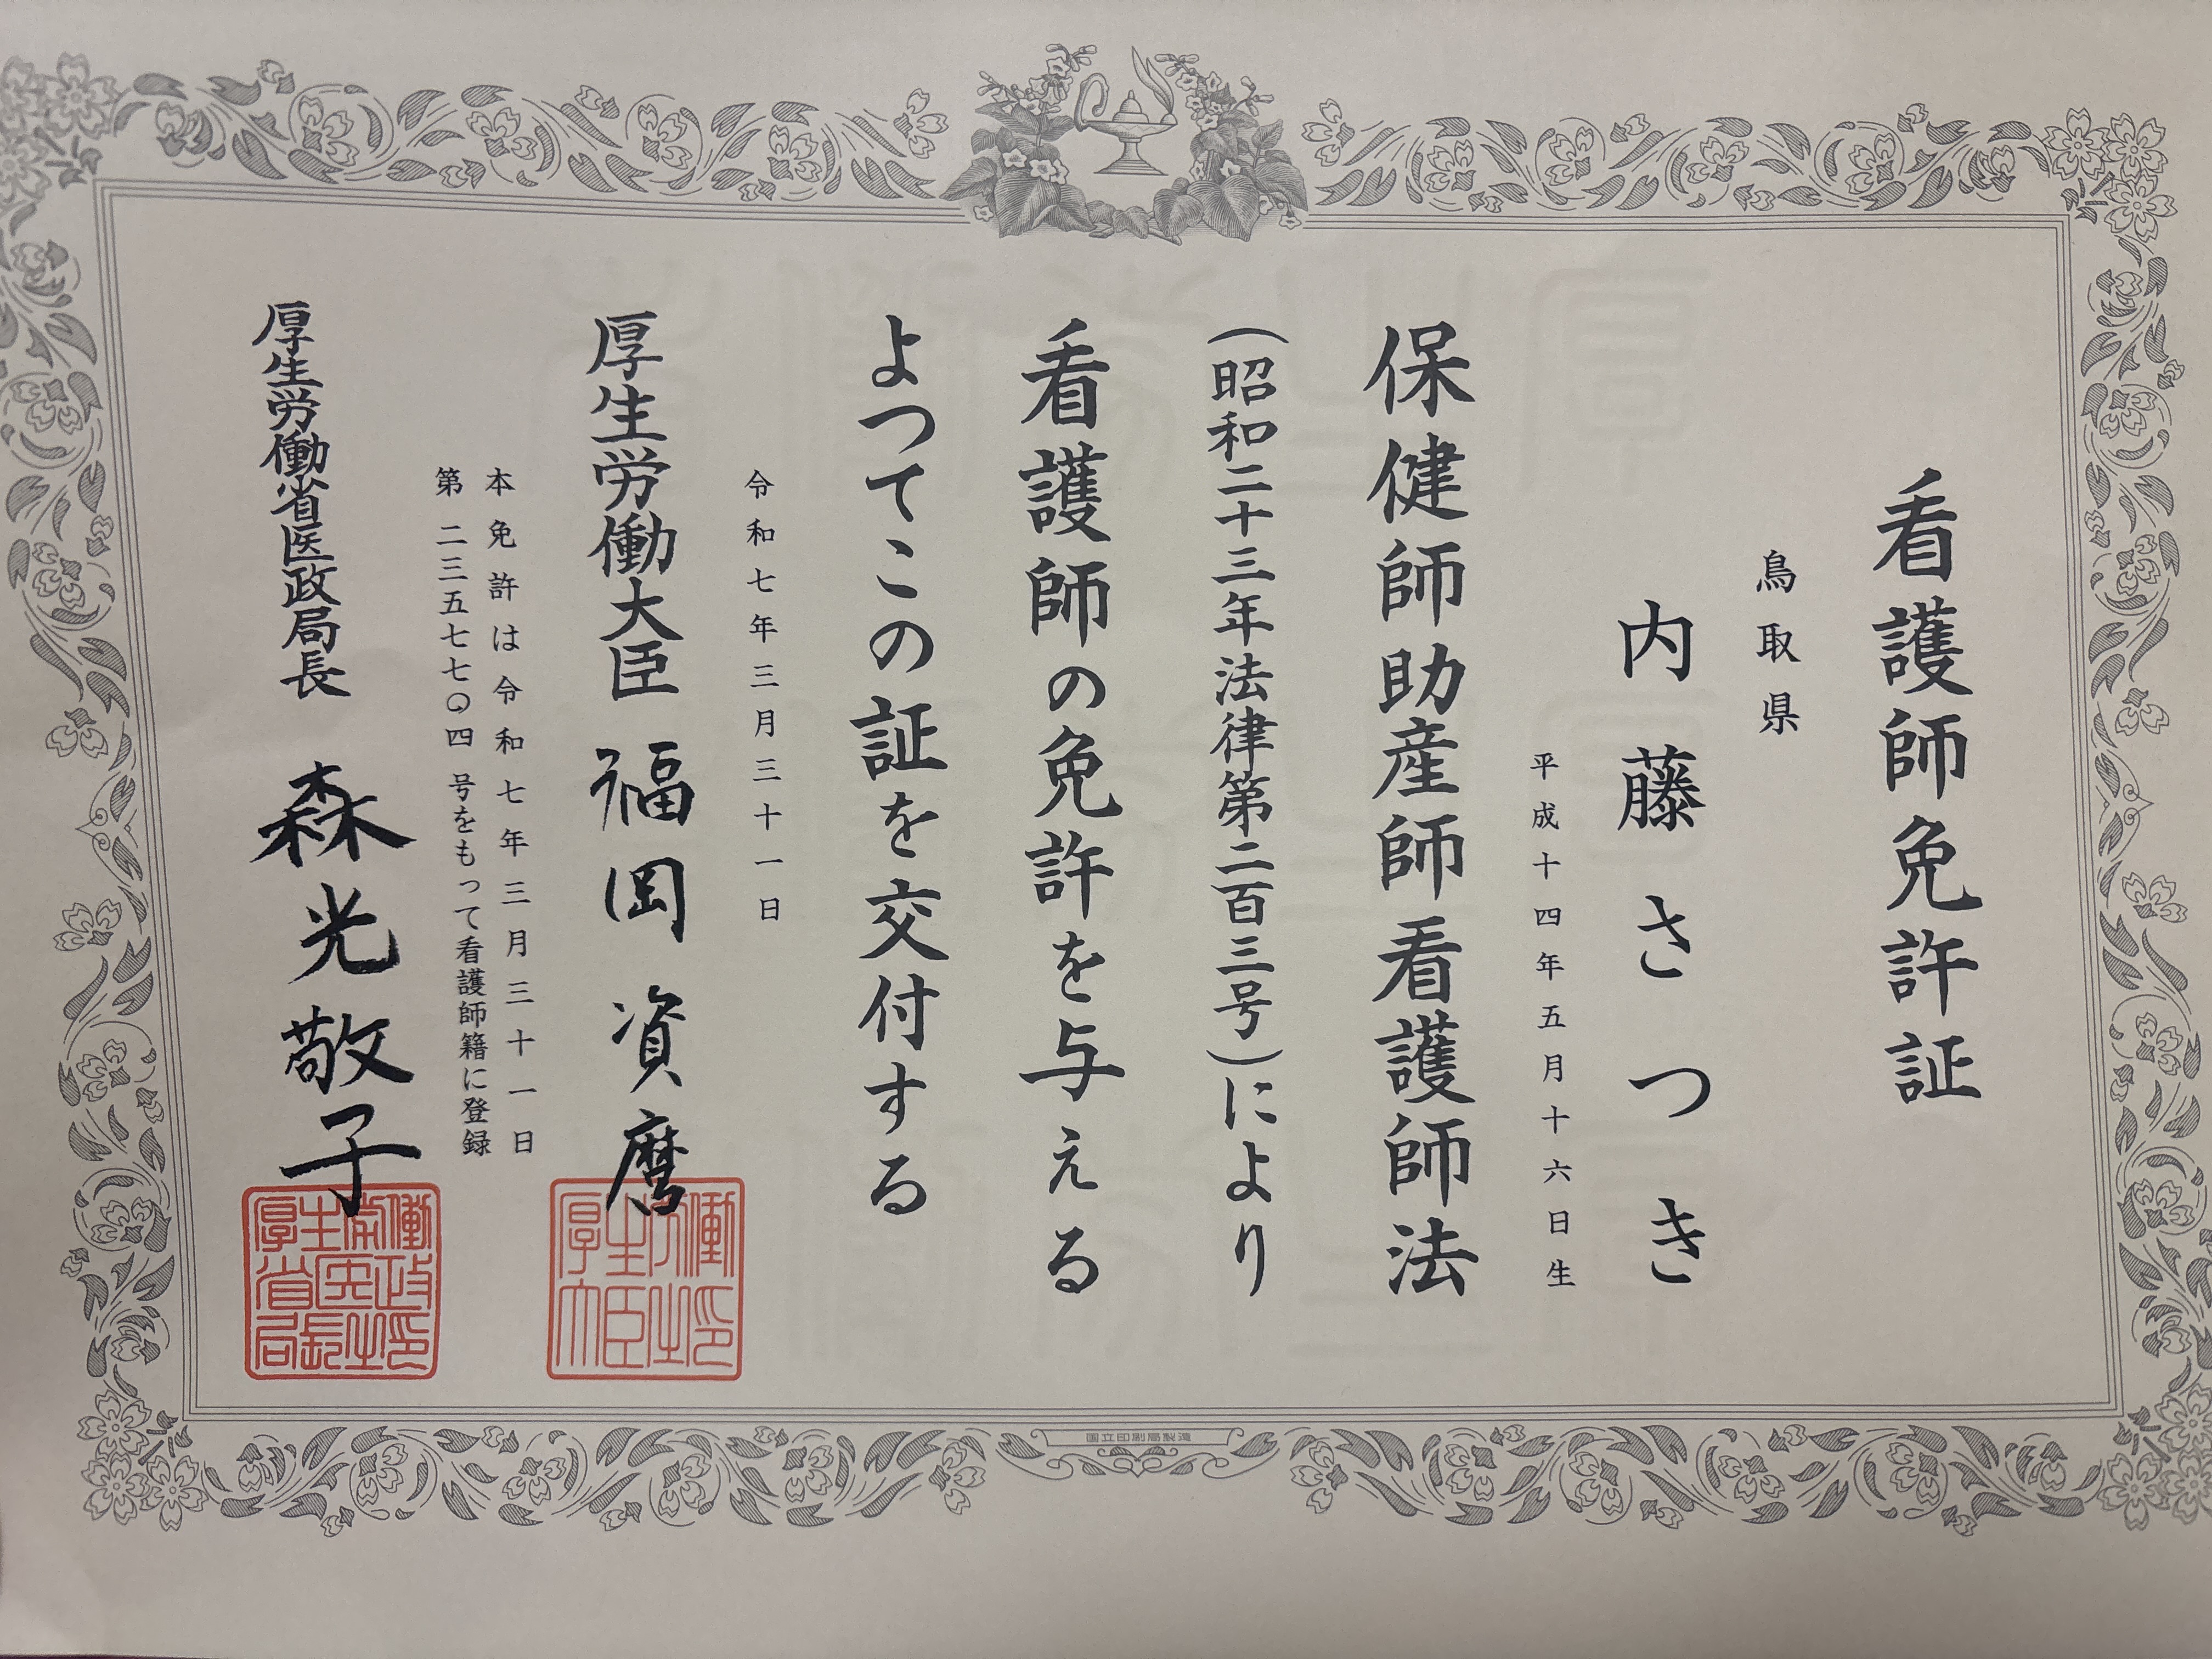 看護師免許証
鳥取県
内藤さつき
平成十四年五月十六日生
保健師助産師看護師法
（昭和二十三年法律第二百三号）により
看護師の免許を与える
よつてこの証を交付する
令和七年三月三十一日
厚生労働大臣 福岡資麿
本免許は令和七年三月三十一日
第二三五七七〇四号をもって看護師籍に登録
厚生労働省医政局長 森光敬子
厚生労働大臣之印
厚生労働省医政局長之印
國立印刷局製造